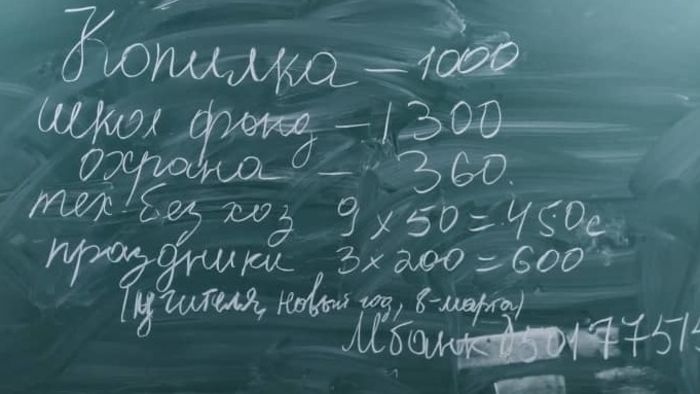 Копилка – 1000
школ фонд – 1300
охрана – 360.
тех без хоз 9 х 50 = 450с
праздники 3 х 200 = 600
(учителя, новый год, 8-марта)
Мбанк 050177515